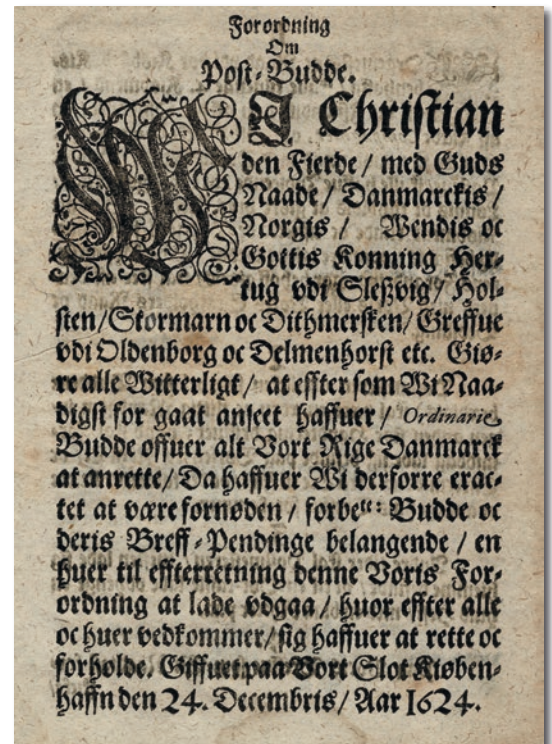 Forordning
Om
Post-Budde.
WJ Christian
den Fierde / med Guds
Naade / Danmarckis /
Norgis / Wendis oc
Gottis Konning Her-
tug vdi Sleßvig / Hol-
sten / Stormarn oc Dithmersken / Greffue
vdi Oldenborg oc Delmenhorst etc. Giø-
re alle Witterligt / at effter som Wi Naa-
digst for gaat anseet haffuer / Ordinarie
Budde offuer alt Vort Rige Danmarck
at anrette / Da haffuer Wi derforre erac-
tet at være fornøden / forbe:te Budde oc
deris Breff-Pendinge belangende / en
huer til effterretning denne Voris For-
ordning at lade vdgaa / huor effter alle
oc huer vedkommer / sig haffuer at rette oc
forholde. Giffuet paa Vort Slot Kiøben-
haffn den 24. Decembris / Aar 1624.